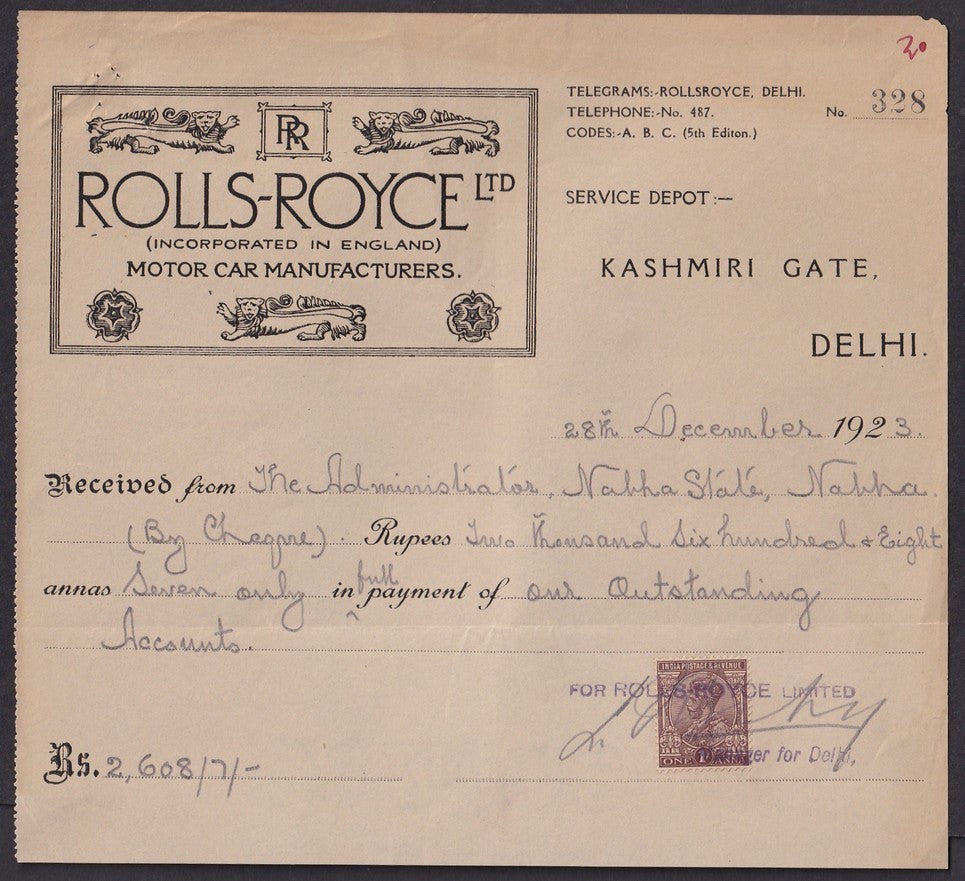 20
TELEGRAMS:-ROLLSROYCE, DELHI.
TELEPHONE:-No. 487.
CODES:-A. B. C. (5th Editon.)
No. 328
RR
ROLLS-ROYCE LTD
(INCORPORATED IN ENGLAND)
MOTOR CAR MANUFACTURERS.
SERVICE DEPOT:—
KASHMIRI GATE,
DELHI.
28th December 1923.
Received from The Administrator, Nabha State, Nabha.
(By Cheque). Rupees Two thousand six hundred & Eight
annas Seven only in full payment of our Outstanding
Accounts.
INDIA POSTAGE & REVENUE
FOR ROLLS-ROYCE LIMITED
Manager for Delhi,
ONE ANNA
Rs. 2,608/7/-